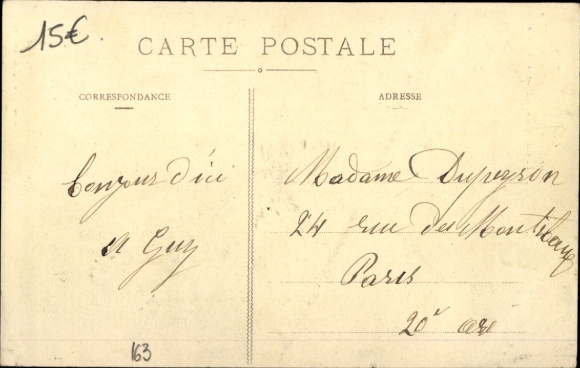 15€
CARTE POSTALE
CORRESPONDANCE
ADRESSE
bonjour d'ici
A Guy
Madame Dupeyron
24 rue des
Paris
20e arr
163